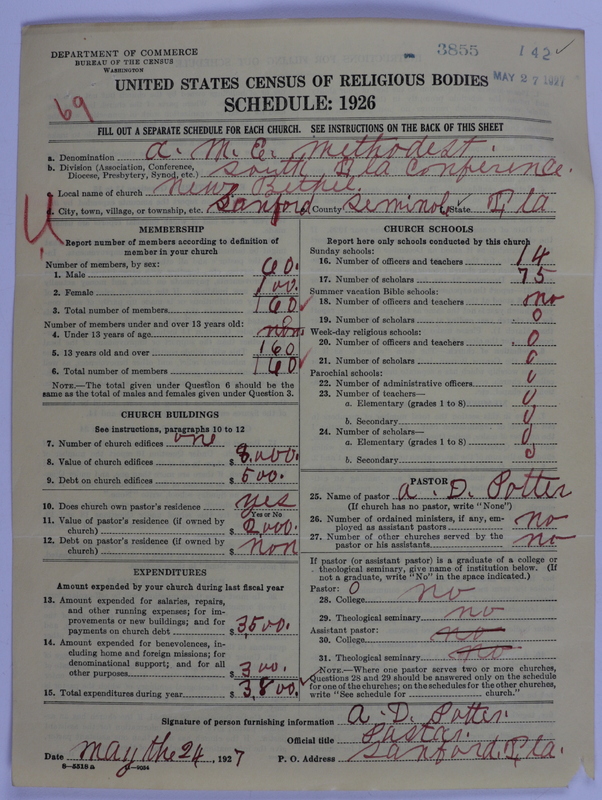 DEPARTMENT OF COMMERCE
BUREAU OF THE CENSUS
WASHINGTON
3855
142 ✓
MAY 27 1927
69
UNITED STATES CENSUS OF RELIGIOUS BODIES
SCHEDULE: 1926
FILL OUT A SEPARATE SCHEDULE FOR EACH CHURCH. SEE INSTRUCTIONS ON THE BACK OF THIS SHEET
a. Denomination A. M. E. Methodest.
b. Division (Association, Conference, Diocese, Presbytery, Synod, etc.) South Fla Conference.
c. Local name of church New Bethel
d. City, town, village, or township, etc. Sanford County Seminole State Fla
MEMBERSHIP
Report number of members according to definition of member in your church
Number of members, by sex:
1. Male 60.
2. Female 100.
3. Total number of members 160 ✓
Number of members under and over 13 years old:
4. Under 13 years of age non
5. 13 years old and over 160
6. Total number of members 160 ✓
NOTE.—The total given under Question 6 should be the same as the total of males and females given under Question 3.
CHURCH BUILDINGS
See instructions, paragraphs 10 to 12
7. Number of church edifices one
8. Value of church edifices $ 8,000.
9. Debt on church edifices $ 500.
10. Does church own pastor's residence yes
Yes or No
11. Value of pastor's residence (if owned by church) $ 2,000.
12. Debt on pastor's residence (if owned by church) $ non
EXPENDITURES
Amount expended by your church during last fiscal year
13. Amount expended for salaries, repairs, and other running expenses; for improvements or new buildings; and for payments on church debt $ 3,500.
14. Amount expended for benevolences, including home and foreign missions; for denominational support; and for all other purposes $ 300.
15. Total expenditures during year $ 3,800. ✓
CHURCH SCHOOLS
Report here only schools conducted by this church
Sunday schools:
16. Number of officers and teachers 14
17. Number of scholars 75
Summer vacation Bible schools:
18. Number of officers and teachers no
19. Number of scholars 0
Week-day religious schools:
20. Number of officers and teachers 0
21. Number of scholars 0
Parochial schools:
22. Number of administrative officers 0
23. Number of teachers—
a. Elementary (grades 1 to 8) 0
b. Secondary 0
24. Number of scholars—
a. Elementary (grades 1 to 8) 0
b. Secondary 0
PASTOR
25. Name of pastor A. D. Potter
(If church has no pastor, write "None")
26. Number of ordained ministers, if any, employed as assistant pastors no
27. Number of other churches served by the pastor or his assistants no
If pastor (or assistant pastor) is a graduate of a college or theological seminary, give name of institution below. (If not a graduate, write "No" in the space indicated.)
Pastor: 0
28. College no
29. Theological seminary no
Assistant pastor:
30. College no
31. Theological seminary no
NOTE.—Where one pastor serves two or more churches, Questions 28 and 29 should be answered only on the schedule for one of the churches; on the schedules for the other churches, write "See schedule for church."
Signature of person furnishing information A. D. Potter.
Official title Pastor.
Date may the 24, 1927 P. O. Address Sanford. Fla.
8—5518 a